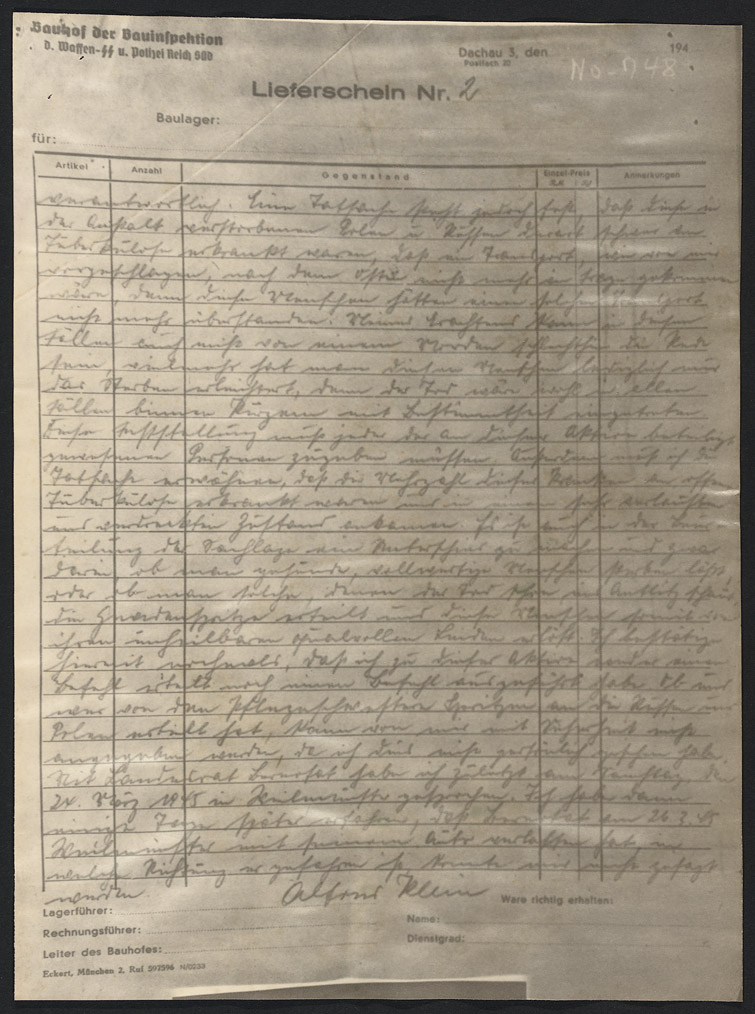 Bauhof der Bauinspektion
d. Waffen-SS u. Polizei Reich Süd
Dachau 3, den 194
Postfach 27
No-1748
Lieferschein Nr. 2
Baulager:
für:
Artikel Anzahl Gegenstand Einzel-Preis Anmerkungen
verantwortlich. Eine Tatsache steht jedoch fest, daß diese in
der Anstalt verstorbenen Polen u. Russen derart schwer an
Tuberkulose erkrankt waren, daß ein Transport, wie von mir
vorgeschlagen, nach dem Osten nicht mehr in Frage gekommen
wäre, denn diese Menschen hätten einen solchen Transport
nicht mehr überstanden. Meines Erachtens kann in diesen
Fällen auch nicht von einem Morden schlechthin die Rede
sein, vielmehr hat man diesen Menschen lediglich nur
das Sterben erleichtert, denn der Tod wäre wohl in allen
Fällen binnen kurzem mit Bestimmtheit eingetreten.
Diese Feststellung muß jeder der an dieser Aktion beteiligt
gewesenen Personen zugeben müssen. Außerdem muß ich die
Tatsache erwähnen, daß die Mehrzahl dieser Kranken an offener
Tuberkulose erkrankt waren und in einem sehr verlausten
und verdreckten Zustand ankamen. Es ist auch in der Beur-
teilung der Sachlage ein Unterschied zu machen und zwar
darin, ob man gesunde, vollwertige Menschen sterben läßt,
oder ob man solche, denen der Tod schon im Antlitz schaut
die Gnadenspritze erteilt und diese Menschen somit von
ihren unheilbaren qualvollen Leiden erlöst. Ich bestätige
hiermit nochmals, daß ich zu dieser Aktion weder einen
Befehl erteilt noch einen Befehl ausgeführt habe. Ob und
wer von den Pflegeschwestern Spritzen an die Russen und
Polen erteilt hat, kann von mir mit Sicherheit nicht
angegeben werden, da ich dies nicht persönlich gesehen habe.
Mit Landesrat Bernotat habe ich zuletzt am Samstag, den
24. März 1945 in Weilmünster gesprochen. Ich habe dann
einige Tage später erfahren, daß Bernotat am 26.3.45
Weilmünster mit seinem Auto verlassen hat, in
welche Richtung er gefahren ist konnte mir nicht gesagt
werden.
Alfons Klein
Ware richtig erhalten:
Lagerführer:
Name:
Rechnungsführer:
Dienstgrad:
Leiter des Bauhofes:
Eckert, München 2, Ruf 597596